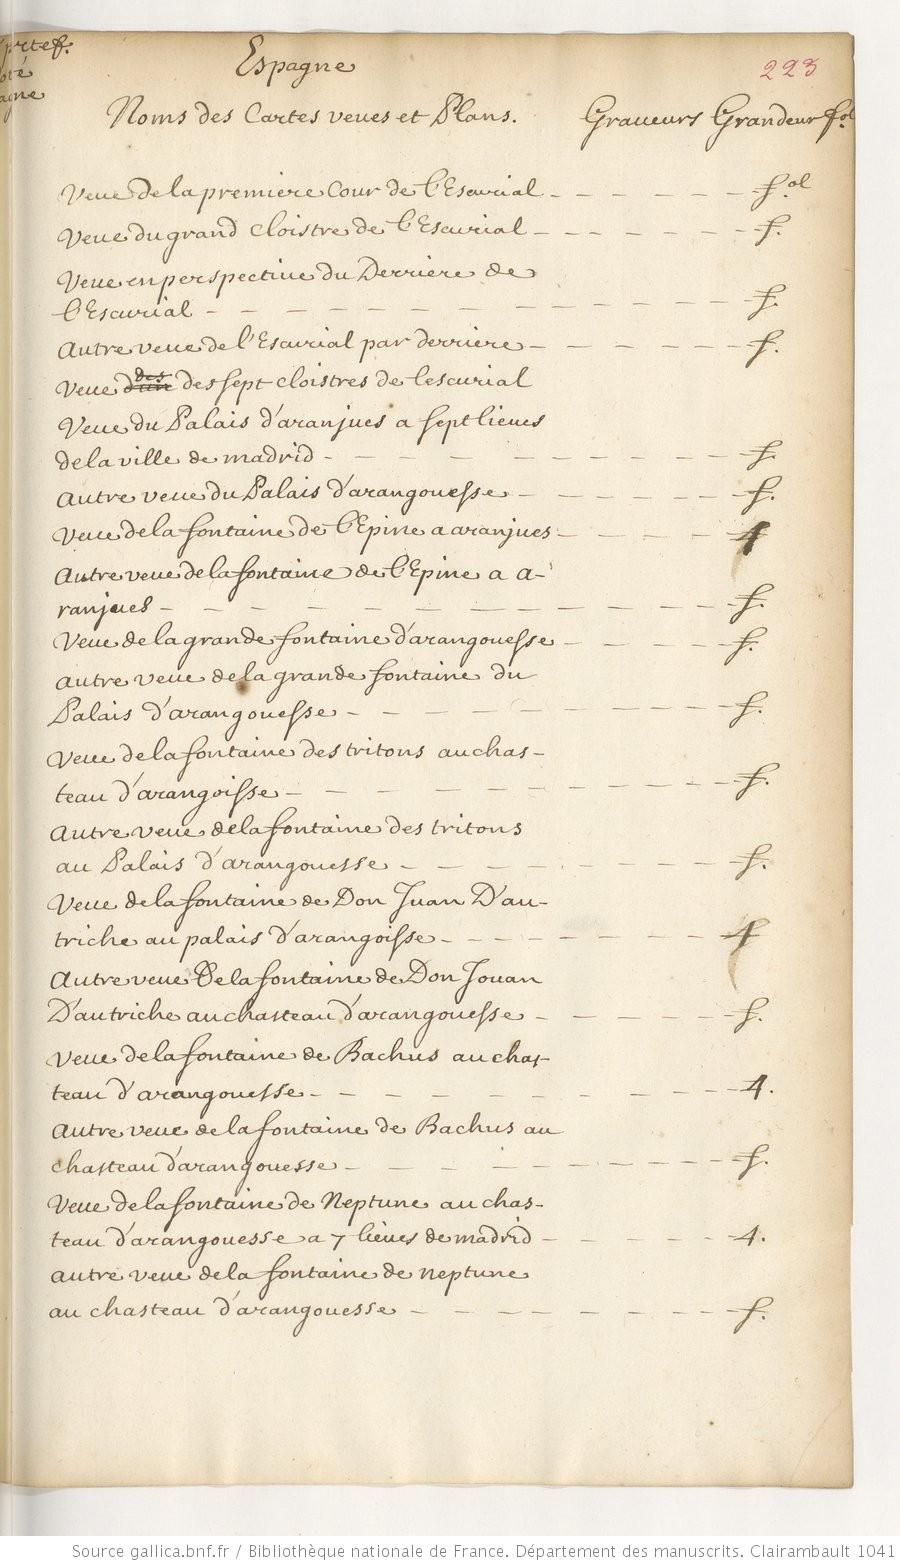 Espagne
223
Noms des Cartes veues et Plans. Graueurs Grandeur fol
Veue de la premiere Cour de l'Escurial - - - - - - f.ol
Veue du grand Cloistre de l'Escurial - - - - - - f.
Veue en perspective du Derriere de
l'Escurial - - - - - - - - - - - - f.
Autre veue de l'Escurial par derriere - - - - - - f.
Veue des sept cloistres de lescurial
Veue du Palais d'aranjues a sept lieues
de la ville de madrid - - - - - - - - - - f.
autre veue du Palais d'arangouesse - - - - - - f.
Veue de la fontaine de l'Epine a aranjues - - - - - 4
Autre veue de la fontaine de l'Epine a a-
ranjues - - - - - - - - - - - - f.
Veue de la grande fontaine d'arangouesse - - - - - f.
autre veue de la grande fontaine du
Palais d'arangouesse - - - - - - - - - - f.
Veue de la fontaine des tritons au chas-
teau d'arangoisse - - - - - - - - - - - f.
Autre veue de la fontaine des tritons
au Palais d'arangouesse - - - - - - - - - f.
Veue de la fontaine de Don Juan D'au-
triche au palais d'arangoisse - - - - - - - - f
Autre veue De la fontaine de Don Jouan
D'autriche au chasteau d'arangouesse - - - - - f.
Veue de la fontaine de Bachus au chas-
teau d'arangouesse - - - - - - - - - - 4.
Autre veue de la fontaine de Bachus au
chasteau d'arangouesse - - - - - - - - - - f.
Veue de la fontaine de Neptune au chas-
teau d'arangouesse a 7 lieues de madrid - - - - - 4.
autre veue de la fontaine de neptune
au chasteau d'arangouesse - - - - - - - - f.
Source gallica.bnf.fr / Bibliothèque nationale de France. Département des manuscrits. Clairambault 1041